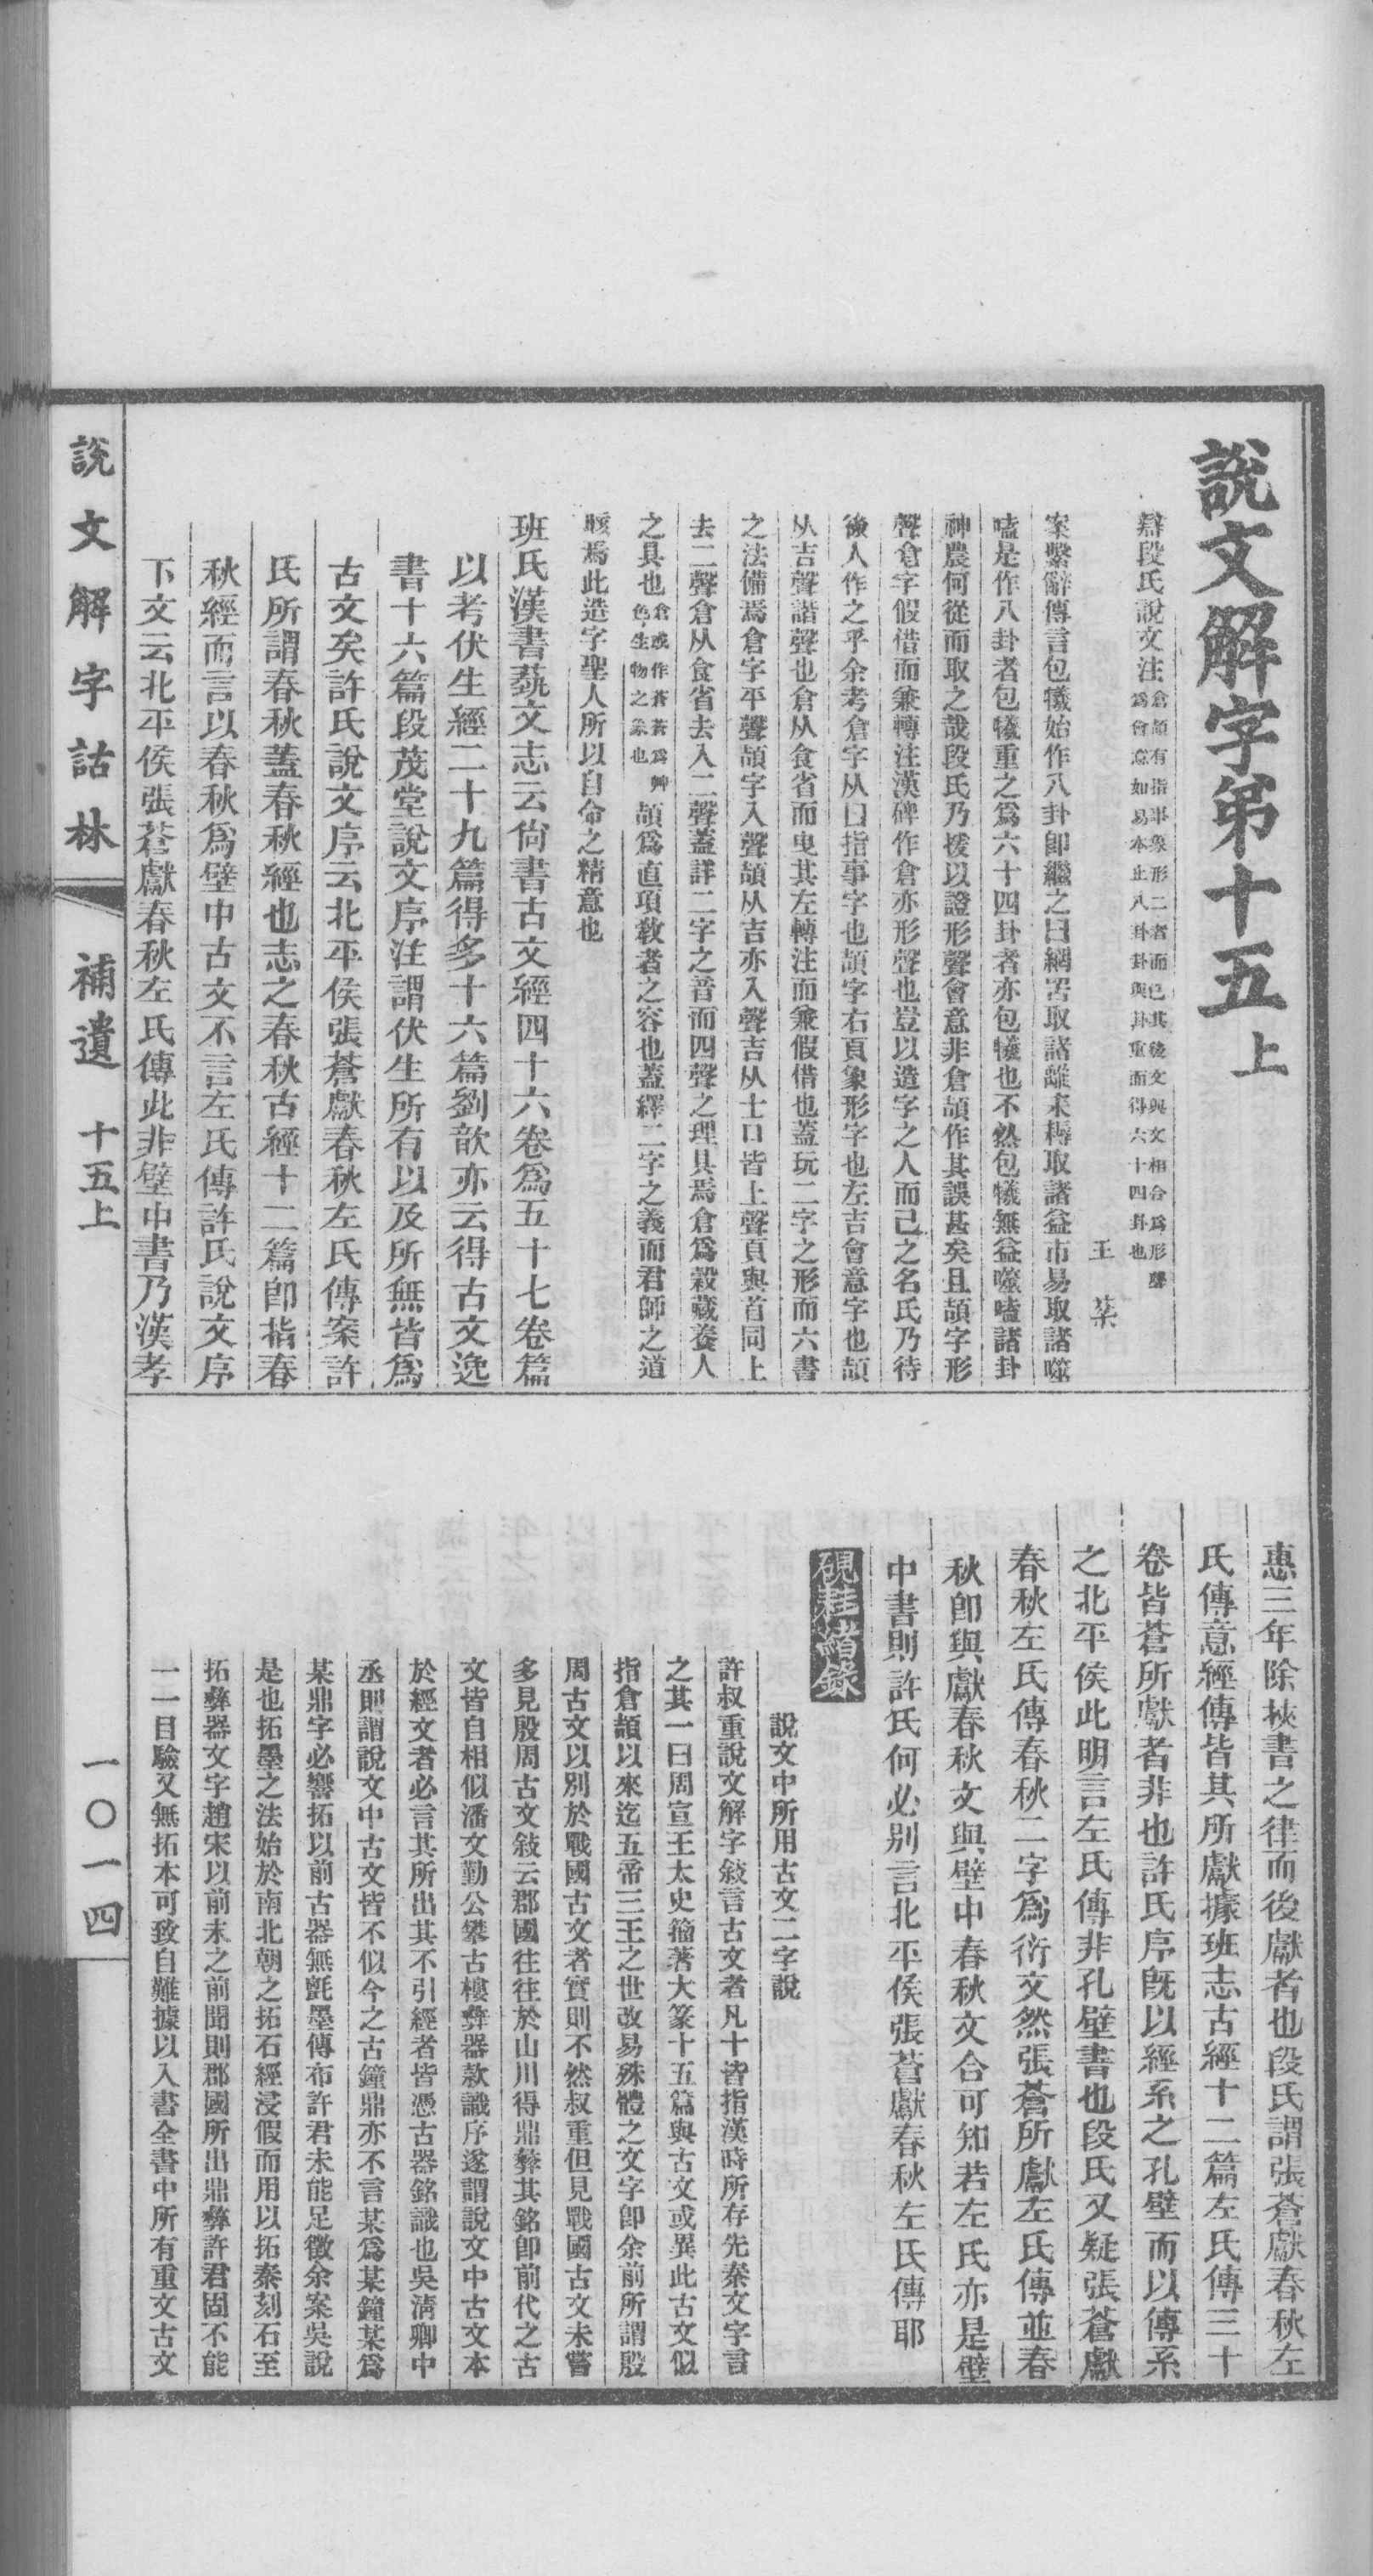 說文解字弟十五上
辯段氏說文注倉頡有指事象形二者而已其後文與文相合爲形聲爲會意如易本止八卦卦與卦重而得六十四卦也
王棻
案繫辭傳言包犧始作八卦卽繼之曰網罟取諸離耒耨取諸益市易取諸噬
嗑是作八卦者包犧重之爲六十四卦者亦包犧也不然包犧無益噬嗑諸卦
神農何從而取之哉段氏乃援以證形聲會意非倉頡作其誤甚矣且頡字形
聲倉字假借而兼轉注漢碑作倉亦形聲也豈以造字之人而己之名氏乃待
後人作之乎余考倉字从口指事字也頡字右頁象形字也左吉會意字也頡
从吉聲諧聲也倉从食省而曳其左轉注而兼假借也蓋玩二字之形而六書
之法備焉倉字平聲頡字入聲頡从吉亦入聲吉从士口皆上聲頁與首同上
去二聲倉从食省去入二聲蓋詳二字之音而四聲之理具焉倉爲穀藏養人
之具也倉或作蒼蒼爲艸色生物之象也頡爲直項敎者之容也蓋繹二字之義而君師之道
賅焉此造字聖人所以自命之精意也
班氏漢書蓺文志云尙書古文經四十六卷爲五十七卷篇
以考伏生經二十九篇得多十六篇劉歆亦云得古文逸
書十六篇段茂堂說文序注謂伏生所有以及所無皆爲
古文矣許氏說文序云北平侯張蒼獻春秋左氏傳案許
氏所謂春秋蓋春秋經也志之春秋古經十二篇卽指春
秋經而言以春秋爲壁中古文不言左氏傳許氏說文序
下文云北平侯張蒼獻春秋左氏傳此非壁中書乃漢孝
惠三年除挾書之律而後獻者也段氏謂張蒼獻春秋左
氏傳意經傳皆其所獻據班志古經十二篇左氏傳三十
卷皆蒼所獻者非也許氏序旣以經系之孔壁而以傳系
之北平侯此明言左氏傳非孔壁書也段氏又疑張蒼獻
春秋左氏傳春秋二字爲衍文然張蒼所獻左氏傳並春
秋卽與獻春秋文與壁中春秋文合可知若左氏亦是壁
中書則許氏何必別言北平侯張蒼獻春秋左氏傳耶
硯桂緒錄
說文中所用古文二字說
許叔重說文解字敍言古文者凡十皆指漢時所存先秦文字言
之其一曰周宣王太史籀著大篆十五篇與古文或異此古文似
指倉頡以來迄五帝三王之世改易殊體之文字卽余前所謂殷
周古文以別於戰國古文者實則不然叔重但見戰國古文未嘗
多見殷周古文敍云郡國往往於山川得鼎彝其銘卽前代之古
文皆自相似潘文勤公攀古樓彝器款識序遂謂說文中古文本
於經文者必言其所出其不引經者皆憑古器銘識也吳淸卿中
丞則謂說文中古文皆不似今之古鐘鼎亦不言某爲某鐘某爲
某鼎字必響拓以前古器無氈墨傳布許君未能足徵余案吳說
是也拓墨之法始於南北朝之拓石經浸假而用以拓秦刻石至
拓彝器文字趙宋以前未之前聞則郡國所出鼎彝許君固不能
一一目驗又無拓本可致自難據以入書全書中所有重文古文
說文解字詁林
補遺
十五上
一〇一四